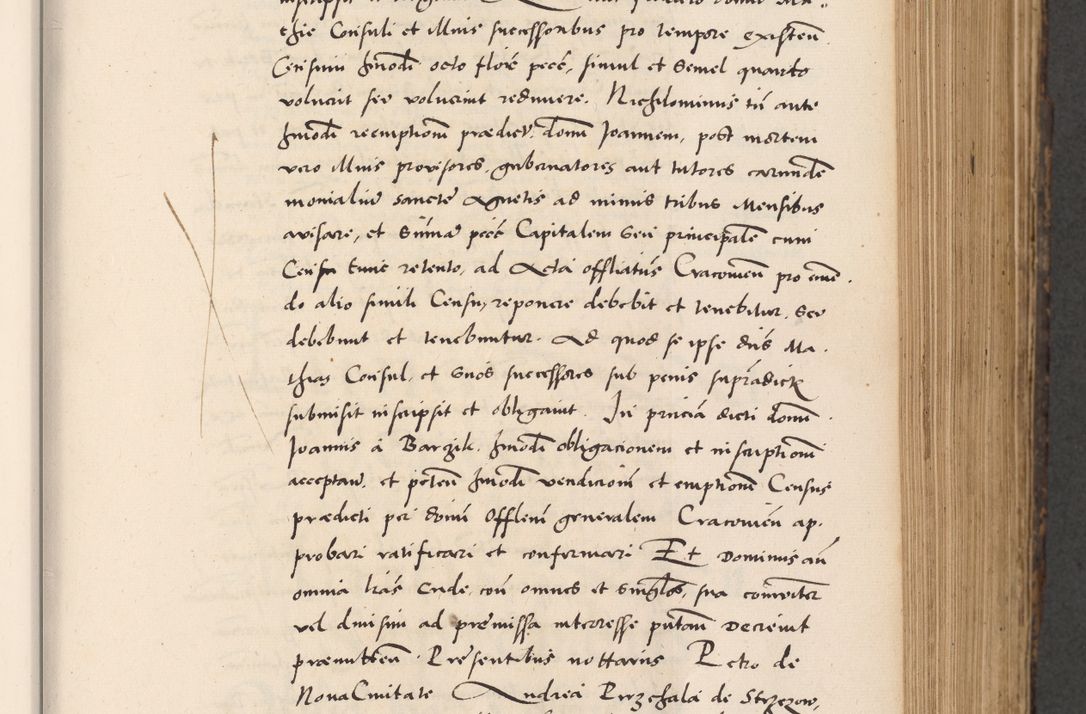 thie Consuli et illius successoribus pro tempore existeñ
Censum hmoði octo florẽ pecẽ, simul et Semel quanto
voluerit seu voluerint redimere. Nichilominus tñ ante
hmoði reemptionẽ prædict. domũ Joannem, post mortem
vero illius provisores, gubernatores aut tutores earundẽ
monialiũ sanctæ Agnetis ad minus tribus Mensibus
avisare, et Summã pecẽ Capitalem seu principalẽ cum
Censu tunc retento, ad Acta offliatus Cracovieñ pro emẽ.
do alio simili Censu, reponere debebit et tenebitur. Seu
debebunt et tenebuntur. Ad quod se ipse dñs Ma.
thias Consul, et suos successores sub penis supradictis
submisit inscripsit et obligavit. In præñcia dicti domĩ.
Joannis à Barczik. hmoði obligacionem et inscriptionẽ
acceptañ. et peteñ hmoði vendicionẽ et emptionẽ Census
prædicti per domĩ Offlem generalem Cracovieñ ap.
probari ratificari et confirmari Et Dominus aũ
omnia lras inde, coñ omnes et singlos, sua coniuncter
vel divisim ad præmissa interesse putañ Decrevit
præmitteñ. Præsentibus nottariis Petro de
NovaCivitate Andrea Przechala de Strzezow,